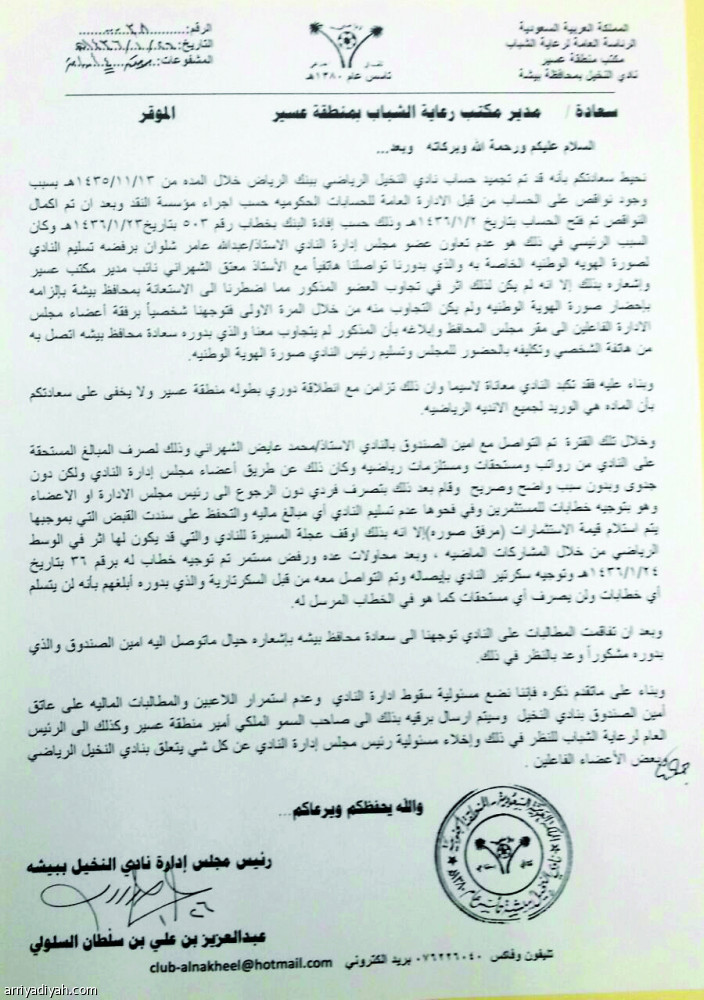 المملكة العربية السعودية
الرئاسة العامة لرعاية الشباب
مكتب منطقة عسير
نادي النخيل بمحافظة بيشة
تأسس عام ١٣٨٠هـ
الرقم:
التاريخ:
المشفوعات:
سعادة / مدير مكتب رعاية الشباب بمنطقة عسير الموقر
السلام عليكم ورحمة الله وبركاته وبعد...
نحيط سعادتكم بأنه قد تم تجميد حساب نادي النخيل الرياضي ببنك الرياض خلال المده من ١٤٣٥/١١/١٣هـ بسبب
وجود نواقص على الحساب من قبل الادارة العامة للحسابات الحكوميه حسب اجراء مؤسسة النقد وبعد ان تم اكمال
النواقص تم فتح الحساب بتاريخ ١٤٣٦/١/٢هـ وذلك حسب إفادة البنك بخطاب رقم ٥٠٣ بتاريخ١٤٣٦/١/٢٣هـ وكان
السبب الرئيسي في ذلك هو عدم تعاون عضو مجلس إدارة النادي الاستاذ/عبدالله عامر شلوان برفضه تسليم النادي
لصورة الهويه الوطنيه الخاصة به والذي بدورنا تواصلنا هاتفياً مع الأستاذ معتق الشهراني نائب مدير مكتب عسير
وإشعاره بذلك إلا انه لم يكن لذلك اثر في تجاوب العضو المذكور مما اضطرنا الى الاستعانة بمحافظ بيشة بإلزامه
بإحضار صورة الهوية الوطنيه ولم يكن التجاوب منه من خلال المرة الاولى فتوجهنا شخصياً برفقة أعضاء مجلس
الادارة الفاعلين الى مقر مجلس المحافظ وإبلاغه بأن المذكور لم يتجاوب معنا والذي بدوره سعادة محافظ بيشه اتصل به
من هاتفة الشخصي وتكليفه بالحضور للمجلس وتسليم رئيس النادي صورة الهوية الوطنيه.
وبناء عليه فقد تكبد النادي معاناة لاسيما وان ذلك تزامن مع انطلاقة دوري بطوله منطقة عسير ولا يخفى على سعادتكم
بأن الماده هي الوريد لجميع الانديه الرياضيه.
وخلال تلك الفترة تم التواصل مع امين الصندوق بالنادي الاستاذ/محمد عايض الشهراني وذلك لصرف المبالغ المستحقة
على النادي من رواتب ومستحقات ومستلزمات رياضيه وكان ذلك عن طريق أعضاء مجلس إدارة النادي ولكن دون
جدوى وبدون سبب واضح وصريح وقام بعد ذلك بتصرف فردي دون الرجوع الى رئيس مجلس الادارة او الاعضاء
وهو بتوجيه خطابات للمستثمرين وفي فحوها عدم تسليم النادي أي مبالغ ماليه والتحفظ على سندت القبض التي بموجبها
يتم استلام قيمة الاستثمارات (مرفق صوره)إلا انه بذلك اوقف عجلة المسيرة للنادي والتي قد يكون لها اثر في الوسط
الرياضي من خلال المشاركات الماضيه ، وبعد محاولات عده ورفض مستمر تم توجيه خطاب له برقم ٣٦ بتاريخ
١٤٣٦/١/٢٤هـ وتوجيه سكرتير النادي بإيصاله وتم التواصل معه من قبل السكرتارية والذي بدوره أبلغهم بأنه لن يتسلم
أي خطابات ولن يصرف أي مستحقات كما هو في الخطاب المرسل له.
وبعد ان تفاقمت المطالبات على النادي توجهنا الى سعادة محافظ بيشه بإشعاره حيال ماتوصل اليه امين الصندوق والذي
بدوره مشكوراً وعد بالنظر في ذلك.
وبناء على ماتقدم ذكره فإننا نضع مسئولية سقوط ادارة النادي وعدم استمرار اللاعبين والمطالبات الماليه على عاتق
أمين الصندوق بنادي النخيل وسيتم ارسال برقيه بذلك الى صاحب السمو الملكي أمير منطقة عسير وكذلك الى الرئيس
العام لرعاية الشباب للنظر في ذلك وإخلاء مسئولية رئيس مجلس إدارة النادي عن كل شي يتعلق بنادي النخيل الرياضي
وبعض الأعضاء الفاعلين .
والله يحفظكم ويرعاكم...
رئيس مجلس إدارة نادي النخيل ببيشه
عبدالعزيز بن علي بن سلطان السلولي
تليفون وفاكس ٠٧٦٢٢٦٠٤٠ بريد الكتروني club-alnakheel@hotmail.com
arriyadiyah.com